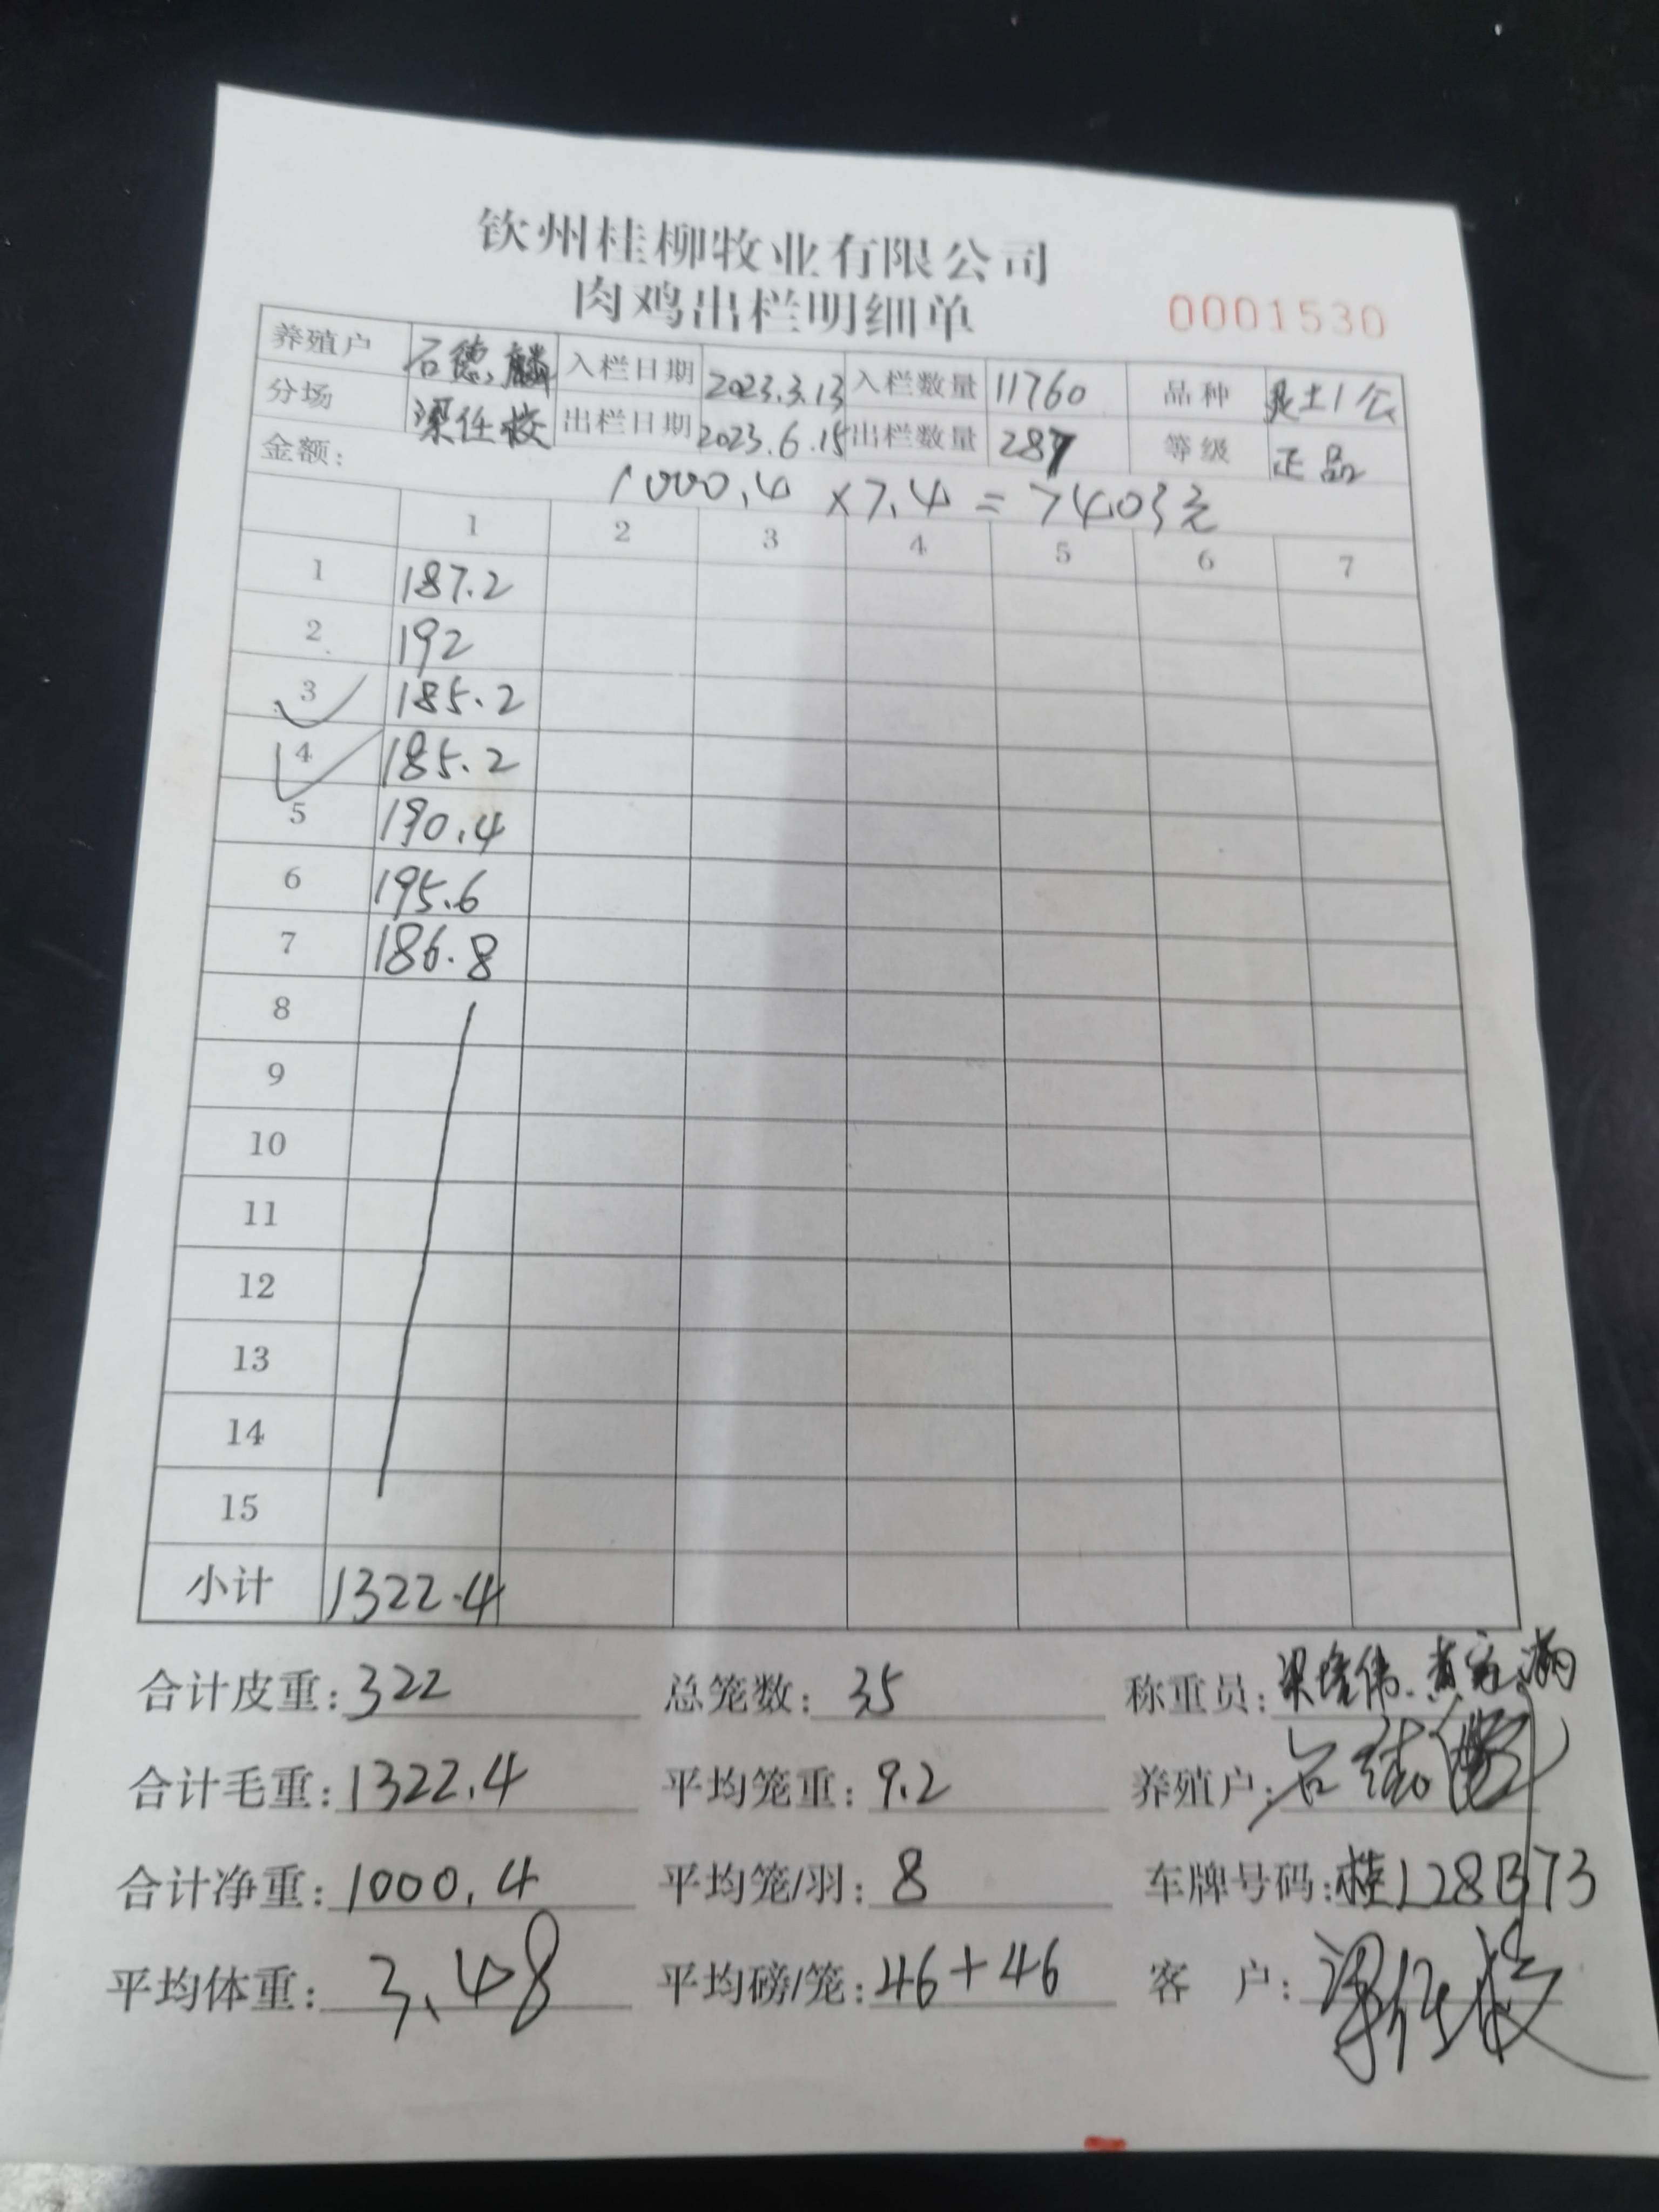 钦州桂柳牧业有限公司
肉鸡出栏明细单
0001530
养殖户 石德麟 入栏日期 2023.3.13 入栏数量 11760 品种 灵土1公
分场 梁任校 出栏日期 2023.6.15 出栏数量 287 等级 正品
金额: 1000.4 ×7.4 = 7403元
1 2 3 4 5 6 7
1 187.2
2 192
3 185.2
4 185.2
5 190.4
6 195.6
7 186.8
8
9
10
11
12
13
14
15
小计 1322.4
合计皮重: 322 总笼数: 35 称重员:
合计毛重: 1322.4 平均笼重: 9.2 养殖户:
合计净重: 1000.4 平均笼/羽: 8 车牌号码: 桂L28B73
平均体重: 3.48 平均磅/笼: 46+46 客户: